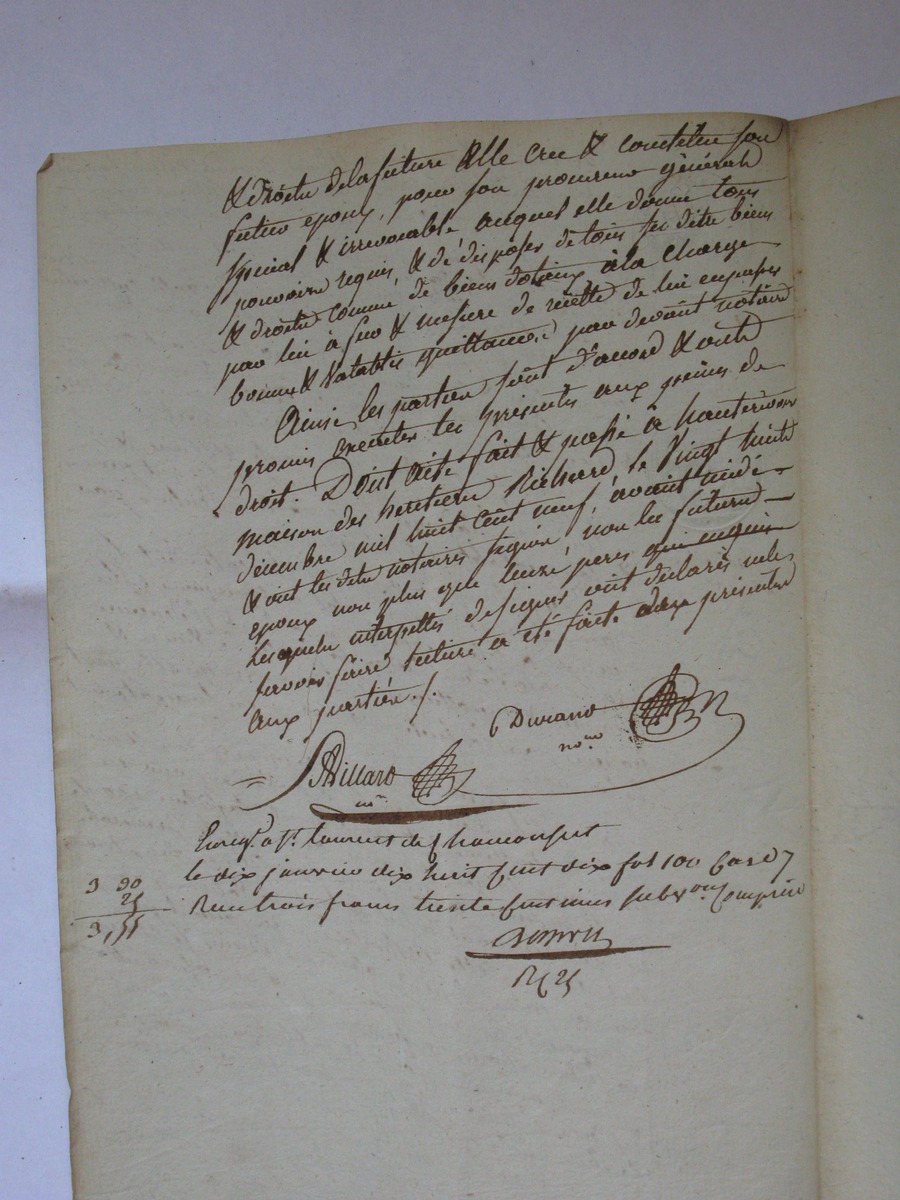 & droits de la future Elle crée & constitue son
futur epoux, pour son procureur général
spécial & irrevocable auquel elle donne tous
pouvoirs requis, & de disposer de tous ses dits biens
& droits comme de biens dotaux à la charge
par lui à fur & mesure de recette de lui en passer
bonnes & valables quittances par devant notaire
Ainsi les parties sont d'accord & ont
promis executer les présentes aux peines de
droit. Dont acte fait & passé à hauterivoire
maison des heritiers Richard, le Vingt huit
décembre mil huit cent neuf, avant midi
& ont les dits notaires signé, non les futurs
epoux non plus que leurs peres qui enquis
Lesquels interpellés de signer ont déclarés ne le
savoir faire, lecture a été faite des présentes
aux parties ./.
Durand
no.re
Villard
nre
Enreg.é a St. laurent de Chamousset
le dix janvier dix huit cent dix fol 100 Case 7
Recu trois francs trente centimes subv.on Comprise
3 30
25
3,55
R 25